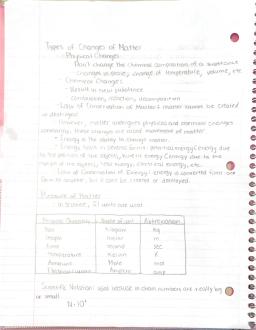 Types of Changes of Matter
- Physical Changes
Don't change the chemical composition of a substance
changes in state, change of temperature, volume, etc
- Chemical Changes
- Result in new substance
combustion, reaction, decomposition
- Law of Conservation of Matter: matter cannot be created
or destroyed.
However, matter undergoes physical and chemical changes
these changes are called movement of matter
- Energy is the ability to change matter.
- Energy exists in several forms: potential energy (energy due
to the position of the object), kinetic energy (energy due to the
of the object), heat energy, electrical energy, etc.
- Law of Conservation of Energy: energy is converted form one
form to another, but it can't be created or destroyed.
Measure of Matter
- In science, SI units are used
Physical Quantity Name of unit Abbreviation
Mass Kilogram Kg
Length Meter m
Time Second sec
Temperature Kelvin K
Amount Mole mol
Electrical Current Ampere amp
Scientific Notation: used because in chem numbers are really big
or small